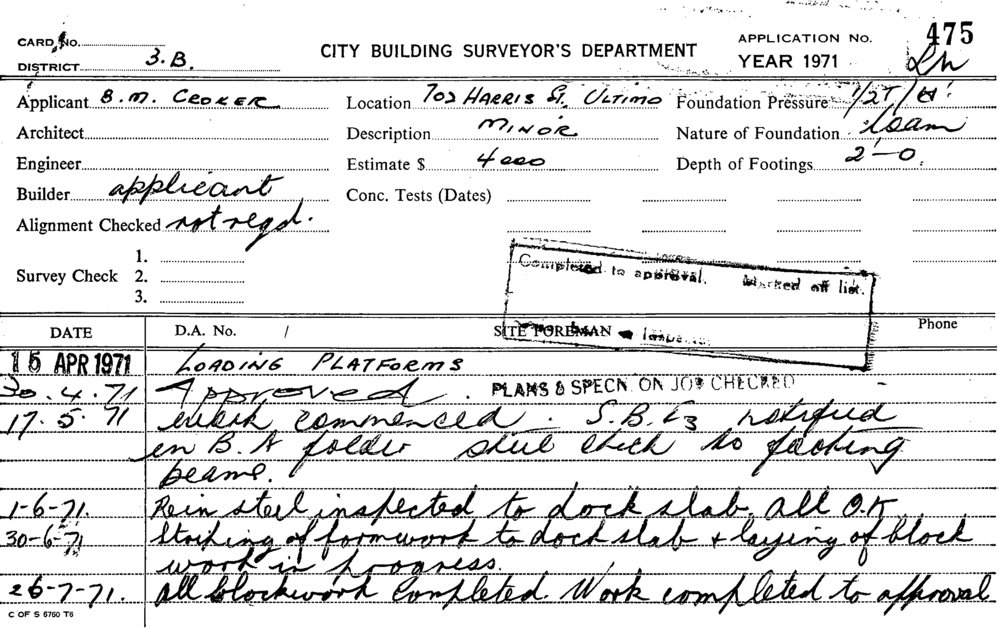 CARD No.
DISTRICT 3.B.
CITY BUILDING SURVEYOR'S DEPARTMENT
APPLICATION No. 475
YEAR 1971
Applicant B.M. CROKER
Location 702 HARRIS St. ULTIMO
Foundation Pressure 1/2T/
Architect
Description MINOR
Nature of Foundation loam
Engineer
Estimate $ 4000
Depth of Footings 2'-0.
Builder applicant
Conc. Tests (Dates)
Alignment Checked not reqd.
Survey Check 1.
2.
3.
Completed to approval. Marked off list.
DATE
D.A. No. /
SITE FOREMAN
Phone
15 APR 1971 LOADING PLATFORMS
30.4.71 Approved. PLANS & SPECN. ON JOB CHECKED
17.5.71 work commenced. S.B.E3 notified
in B.A folder steel check to footing
beams.
1-6-71. Rein steel inspected to dock slab. All O.K
30-6-71 Striping of formwork to dock slab + laying of block
work in progress.
26-7-71. All blockwork Completed. Work completed to approval
C OF S 6760 T6